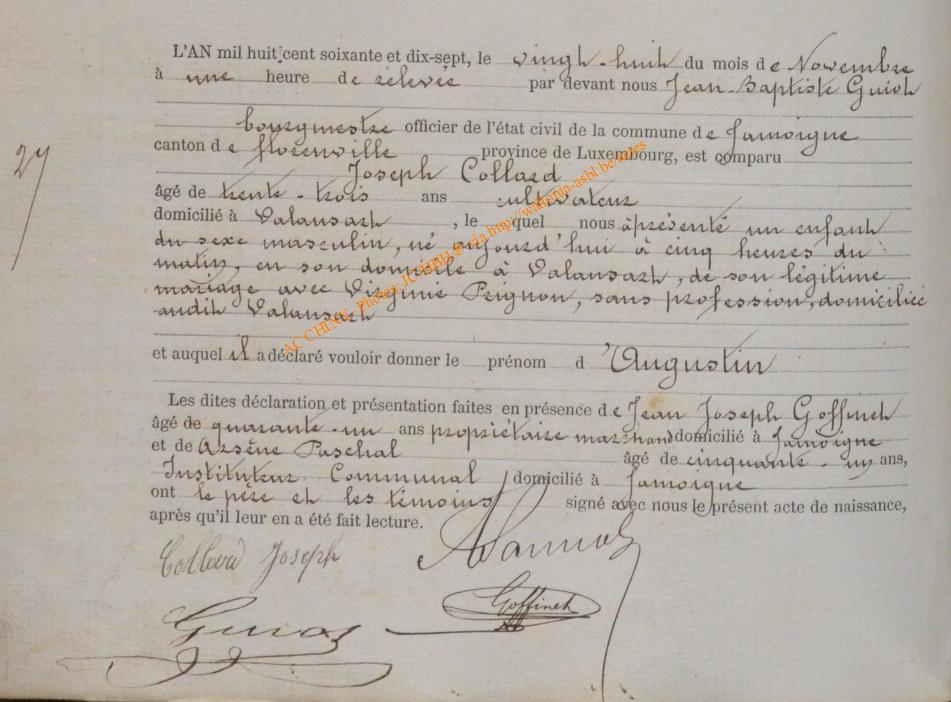 L'AN mil huit cent soixante et dix-sept, le vingt-huit du mois de Novembre
à une heure de relevée par devant nous Jean-Baptiste Guiot
bourgmestre officier de l'état civil de la commune de Jamoigne
canton de florenville province de Luxembourg, est comparu
Joseph Collard
27
âgé de trente-trois ans cultivateur
domicilié à Valansart, le quel nous à présenté un enfant
du sexe masculin, né aujourd'hui à cinq heures du
matin, en son domicile à Valansart, de son légitime
mariage avec Virginie Peignon, sans profession, domiciliée
audit Valansart
AC CHINY, Photos JC via http://wallonia-asbl.be/actes
et auquel il a déclaré vouloir donner le prénom d'Augustin
Les dites déclaration et présentation faites en présence de Jean Joseph Goffinet
âgé de quarante-un ans propriétaire marchand domicilié à Jamoigne
et de Arsène Paschal âgé de cinquante-un ans,
Instituteur Communal domicilié à Jamoigne
ont le père et les témoins signé avec nous le présent acte de naissance,
après qu'il leur en a été fait lecture.
Collard Joseph
Goffinet
Guiot